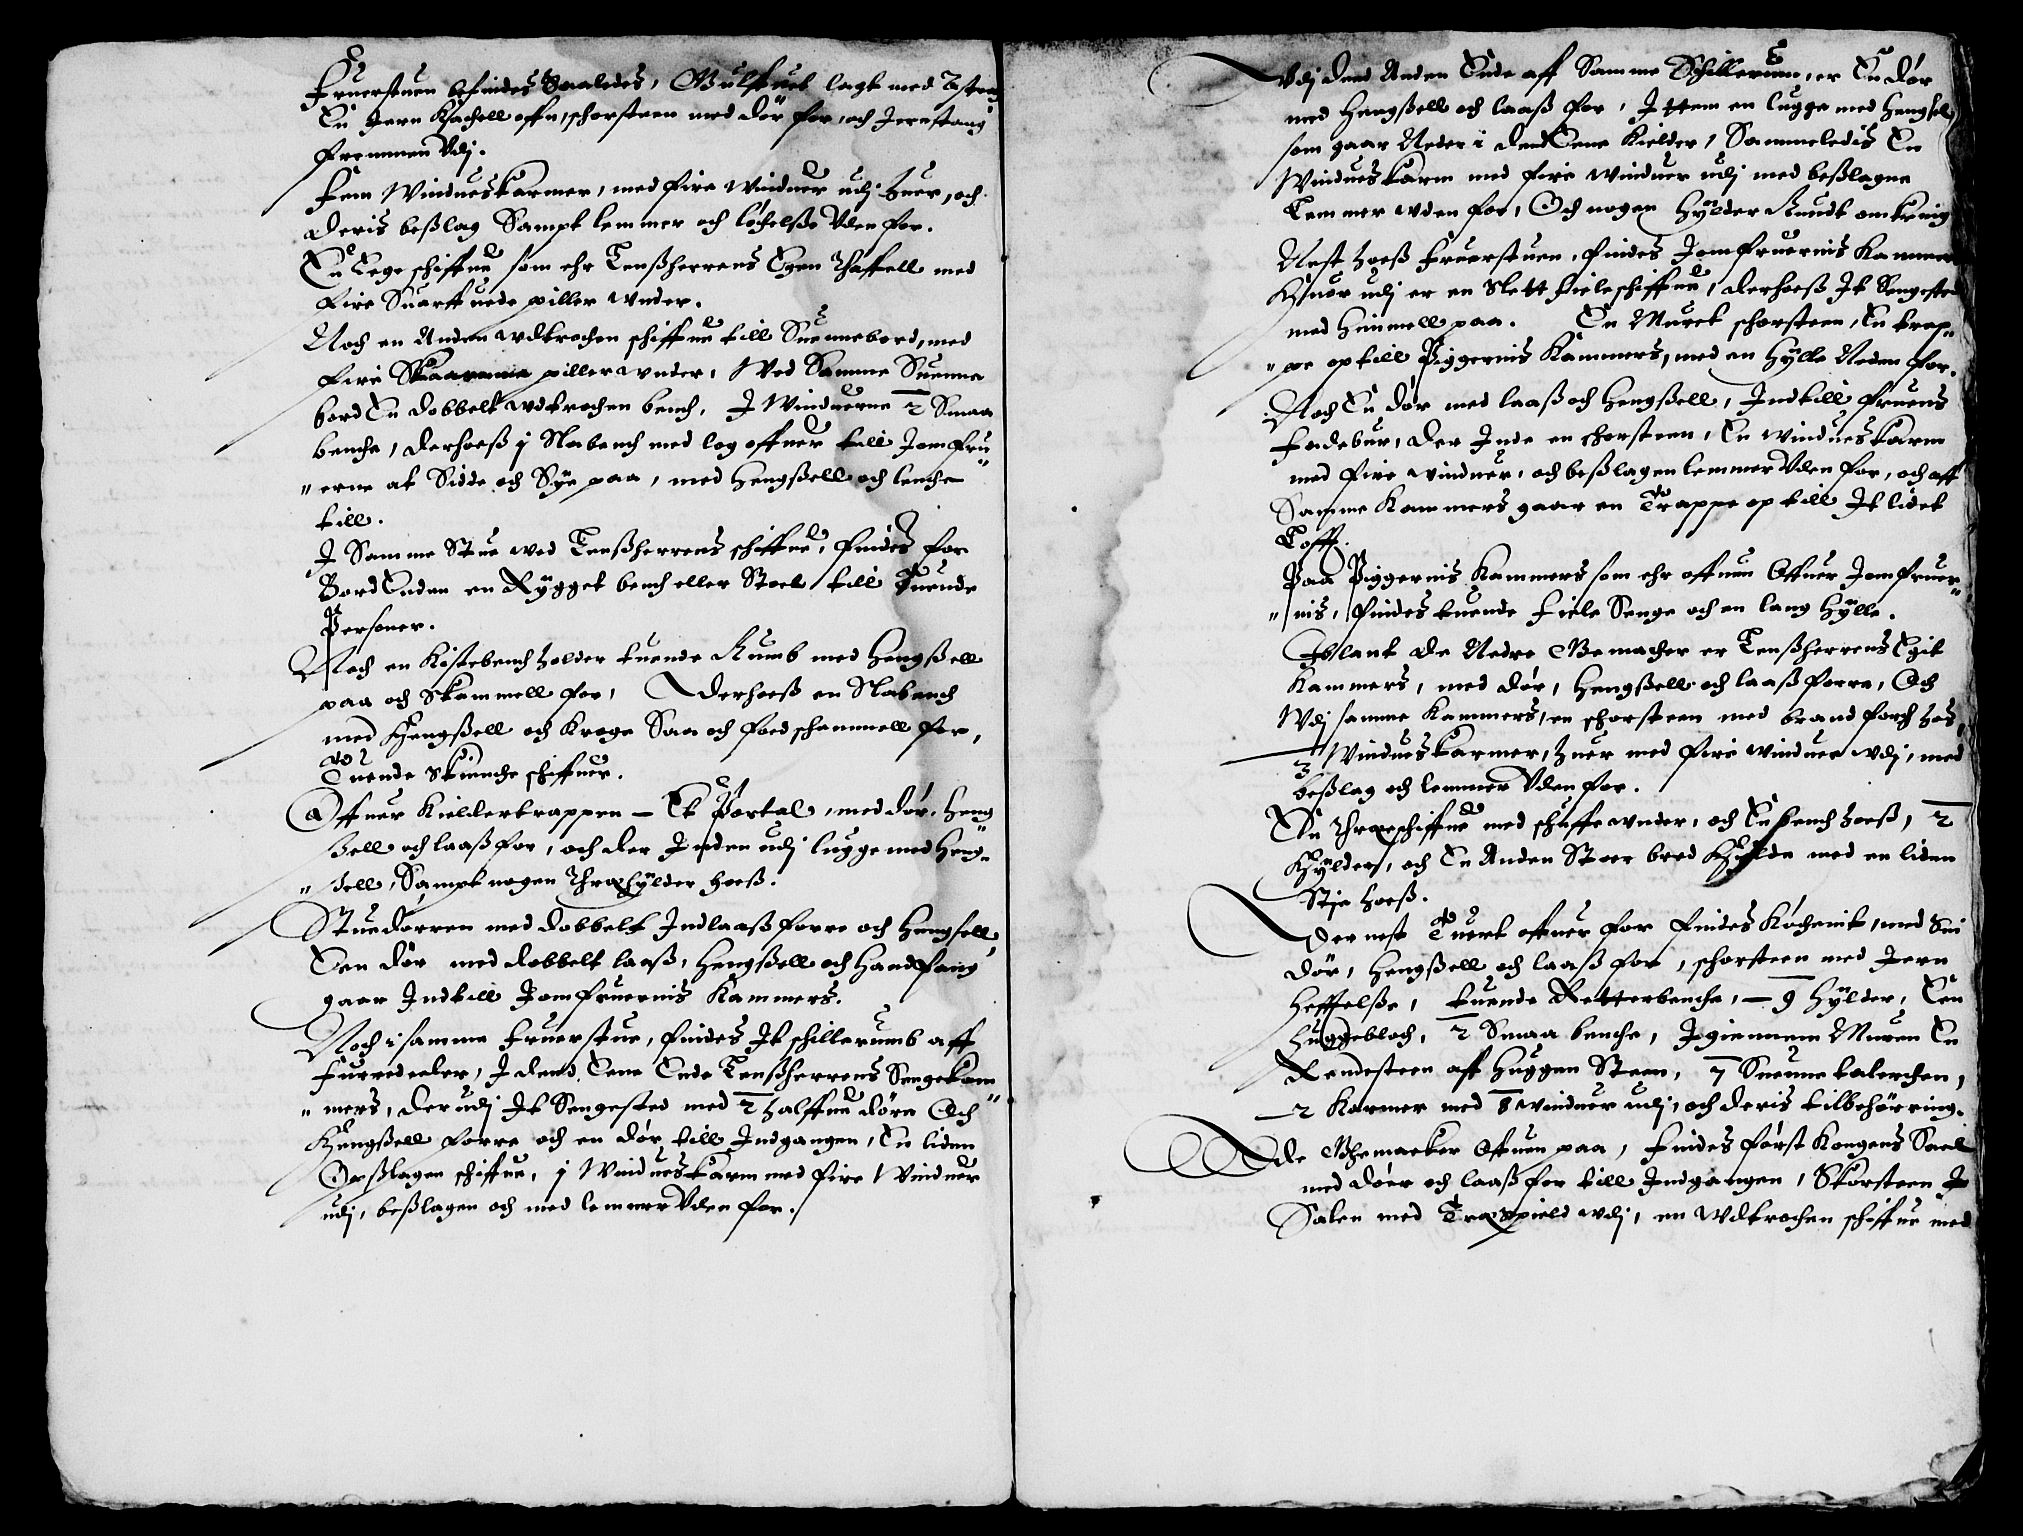 Fruerstuen befindes Saaledes, Gulfuet lagt med Astrag
En Jern Kachell offn, schorsteen med dör for, och Jernstang
fremmen Udj.
Fem Vindueskarmer, med fire vinduer udj huer, och
deris beslag Sampt lemmer och löchelsse Uden for.
En Eege schiffue som ehr Lenssherrens Egen Thaffell med
fire Suarffuede piller under.
Noch en Anden udtrochen schiffue till Suennebord, med
fire piller under, Ved Samme Suenne
bord En dobbelt udtrochen bench, J Vinduerne 2 Smaa
benche, derhoess j Slabench med log offuer till Jomfru
"erne at Sidde och Sye paa, med Hengssell och lenche
till.
J Samme Stue ved Lenssherrens schiffue, findes for
Bord Enden en Rygget bench eller Stoel till Tuende
Personer.
Noch en Kistebench holder tuende Rumb med Hengssell
paa och Skammell for, derhoess en Slabench
med Hengssell och Kroge Saa och foedschammell for,
Tuende Skiencheschiffuer.
Offuer Kieldertrappen – Et Portal, med dör, Heng
ssell och laass for, och der Inden udj lugge med Heng"
"ssell, Sampt nogen Thrappehylder hoess.
Stuedörren med dobbelt Indlaass forre och Hengssell
Een dör med dobbelt laass, Hengssell och Handfang
gaar Indtill Jomfruernis Kammers.
Noch i samme Fruerstue, findes Jt schillerumb aff
Furredeeler, J dend Eene Ende Lenssherrens Sengekam"
"mers, der udj Jt Sengested med 2 halffue döre Och
Hengssell forre och en dör till Indgangen, En liden
Offslagen schiffue, j Vindueskarm med fire Vinduer
udj, besslagen och med lemmer Uden for.
Udj dend Anden Ende aff Samme Schillerum, er En dör
med Hengssell och laass for, Jttem en lugge med Hengssel
som gaar Neder i dend Eene Kielder, Sammeledis En
Vindueskarm med fire vinduer udj med besslagne
Lemmer uden for, Och nogen Hylder Rundt omkring
Nest hoess Fruerstuen, findes Jomfruernis Kammer
Huor udj er en Slett fieleschiffue, derhoess Jt Sengested
med Himmell paa. En Muret schorsteen, En trap"
"pe op till Piggernis Kammers, med en Hylle Neden for.
Noch En dör med laass och Hengssell, Indtill Fruens
Fadebur, der Inde en schorsteen, En vindueskarm
med fire vinduer, och besslagen lemmer Uden for, och aff
Samme Kammers gaar en Trappe op till Jt lidet
Lofft.
Paa Piggernis Kammers som ehr offuen Offuer Jomfruer"
"nis, findes tuende Fiele Senge och en lang Hylle.
Iblant de Nedre Gemacher er Lenssherrens Egit
Kammers, med dör, Hengssell och laass forre, Och
Udj samme Kammers, en schorsteen med brandforch hos,
3 Vindueskarmer, huer med fire vinduer udj, med
besslag och lemmer Uden for.
En schiffue med schuffe under, och En bench hoess, 2
Hylder, och En Anden Stoer bred Hylde med en liden
Stje hoess.
Der nest Tuert offuer for findes Köchenit, med Sin
dör, Hengssell och laass for, schorsteen med Jern
Heffelsse, tuende Retterbenche, – 9 Hylder, Een
Huggebloch, 2 Smaa benche, Jgiennem Muren En
Rendesteen aff Huggen Steen, 7 Suenne talerchen,
– 2 Karmer med 8 vinduer udj, och deris tilbehörring.
De Ghemacker Offuen paa, findes först Kongens Sael
med döer och laass for till Indgangen, Skorsteen J
Salen med udj, en udtrochen schiffue med